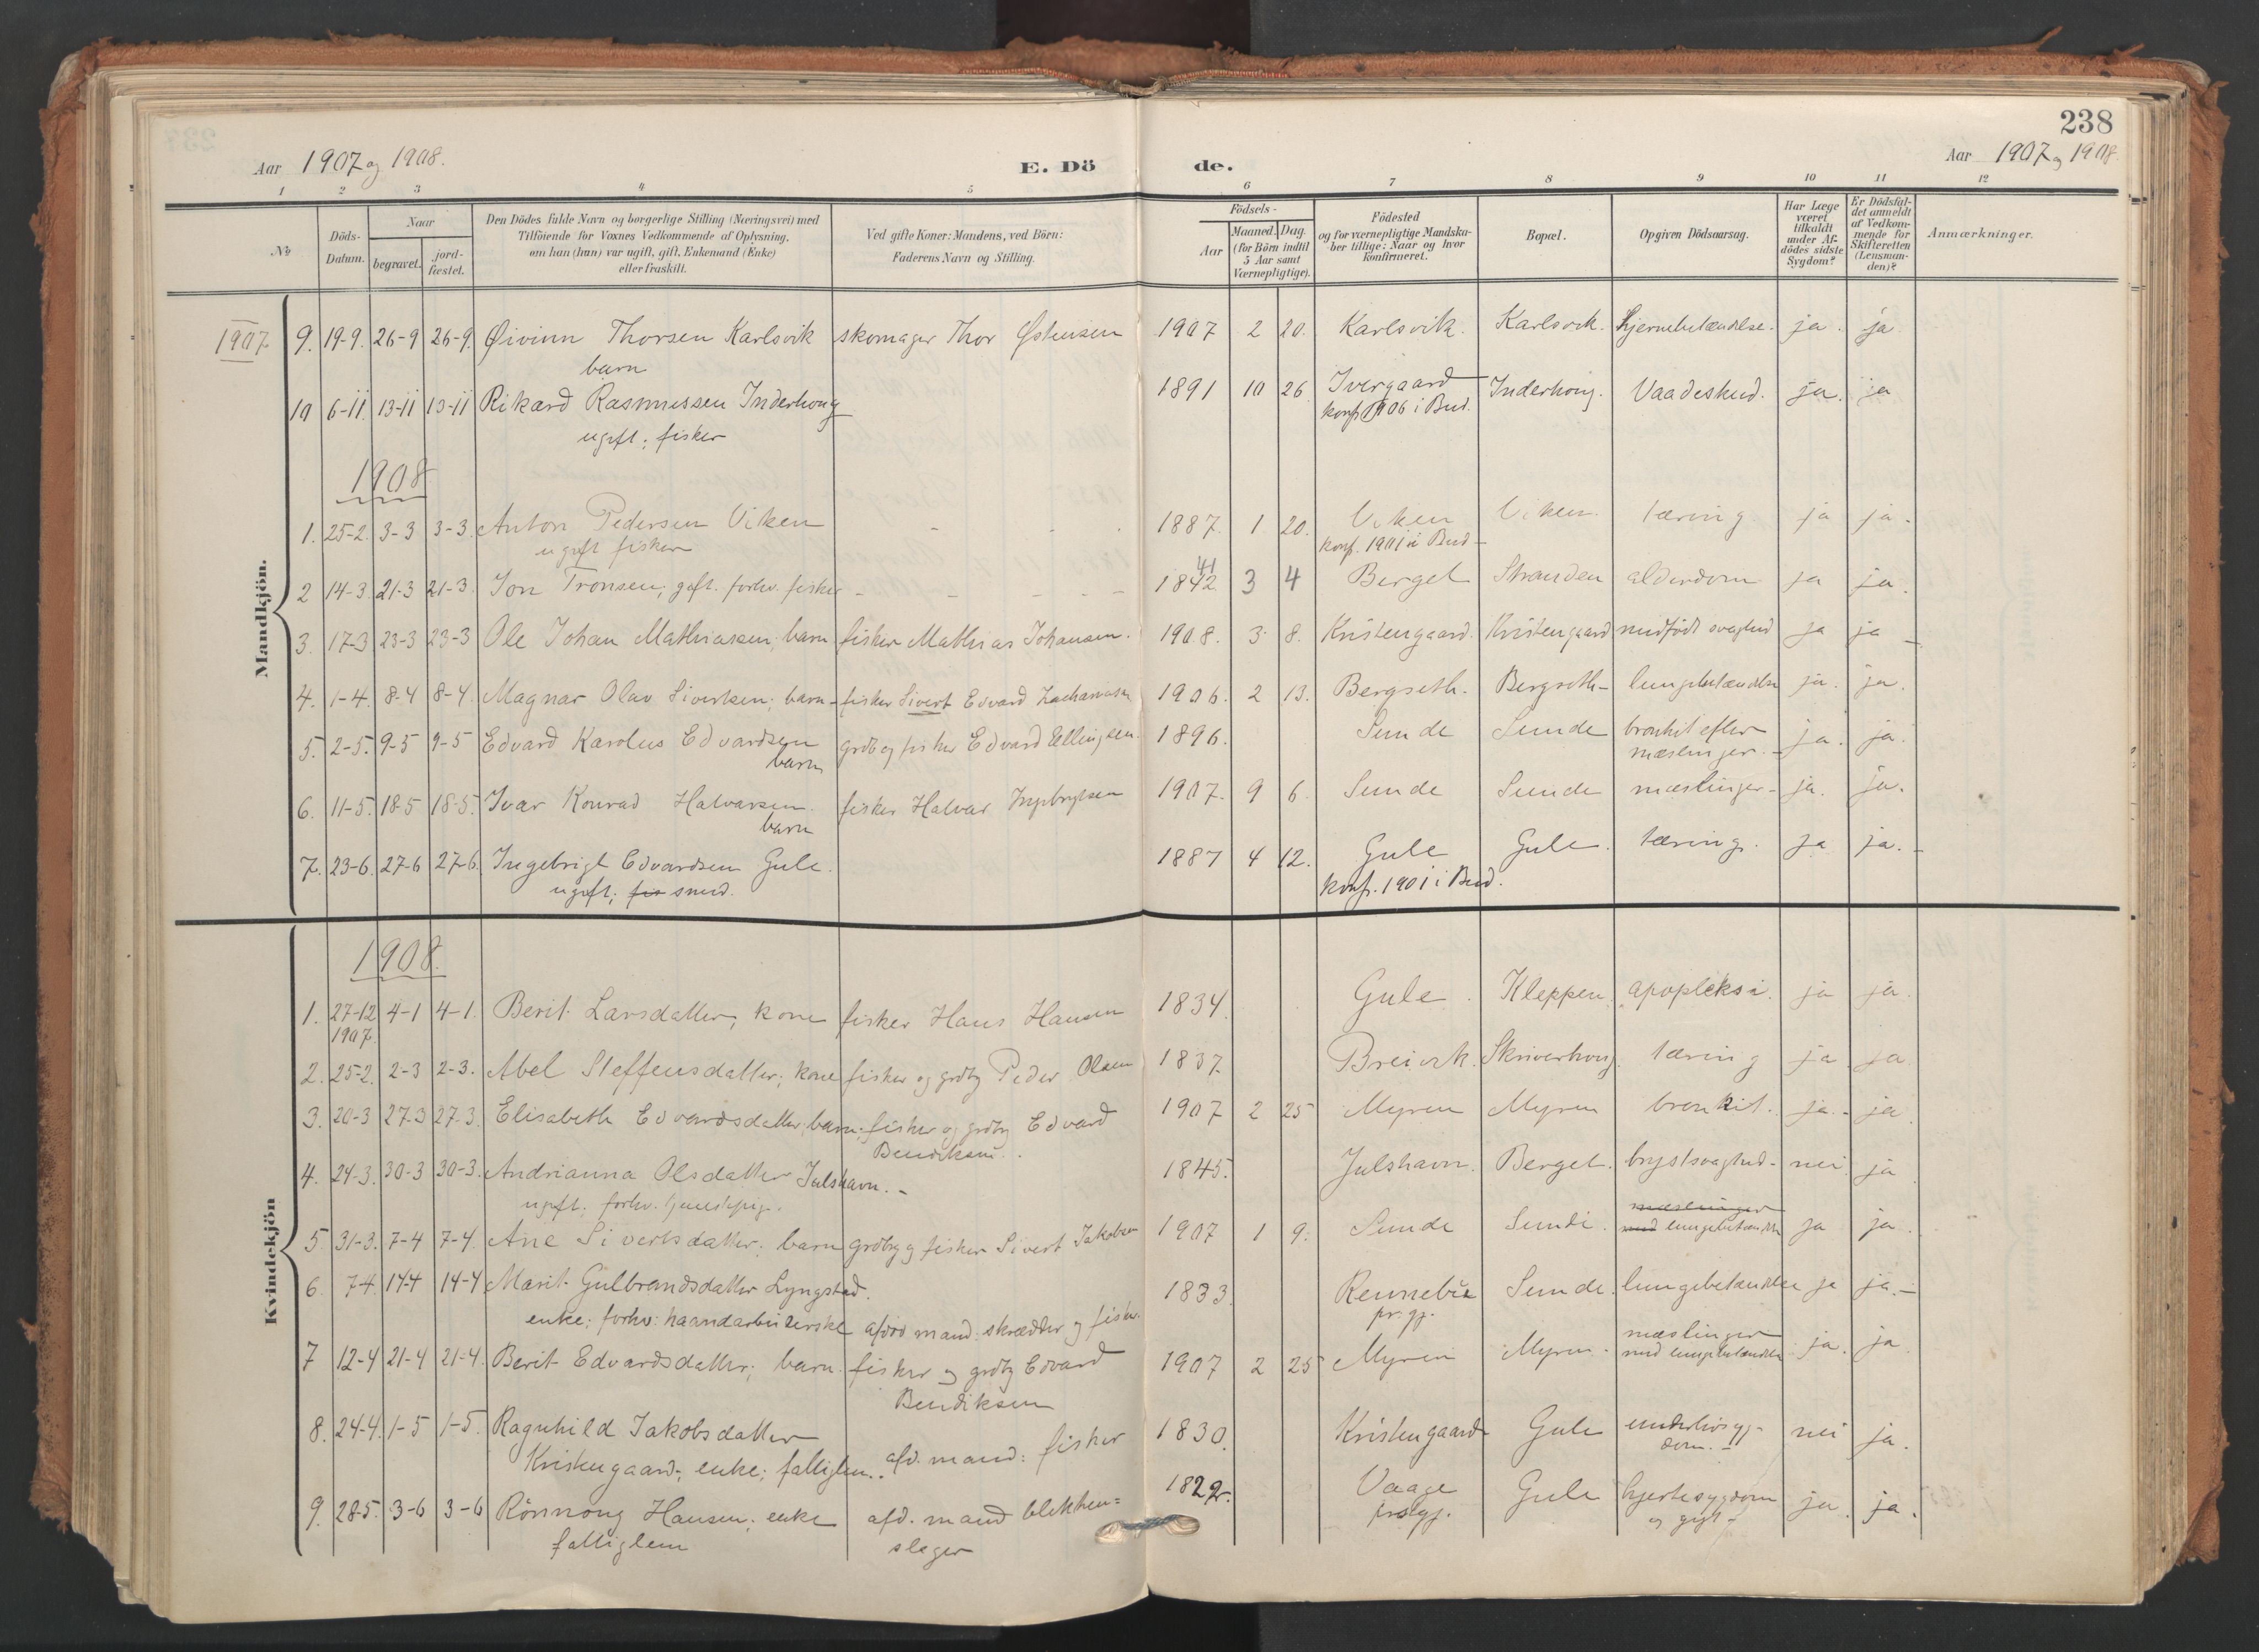 238
Aar 1907 og 1908.
E. Dö
de.
Aar 1907 og 1908.
1 2 3 4 5 6 7 8 9 10 11 12
No
Döds-Datum.
Naar
begravet.
jord-fæstet.
Den Dödes fulde Navn og borgerlige Stilling (Næringsvei) med
Tilföiende for Voxnes Vedkommende af Oplysning,
om han (hun) var ugift, gift, Enkemand (Enke)
eller fraskilt.
Ved gifte Koner: Mandens, ved Börn:
Faderens Navn og Stilling.
Födsels-
Aar
Maaned. Dag.
(for Börn indtil
5 Aar samt
Værnepligtige).
Födested
og for værnepligtige Mandska-
ber tillige: Naar og hvor
Konfirmeret.
Bopæl.
Opgiven Dödsaarsag.
Har Læge
været
tilkaldt
under Af-
dödes sidste
Sygdom?
Er Dödsfal-
det anmeldt
af Vedkom-
mende for
Skifteretten
(Lensman-
den)?
Anmærkninger.
Mandkjön.
1907. 9. 19-9. 26-9 26-9. Øivinn Thorsen Karlsvik skomager Thor Østensen 1907 2 20. Karlsvik. Karlsvik. hjernebetændelse. ja. ja
barn
10 6-11. 13-11 13-11 Rikard Rasmussen Inderhoug 1891 10 26 Ivergaard Inderhoug. Vaadeskud. ja. ja
ugift; fisker konf. 1906 i Bud.
1908
1. 25-2. 3-3 3-3. Anton Pedersen Viken - - . 1887. 1 20. Viken Viken. tæring. ja ja.
ugift fisker konf. 1901 i Bud-
41
2 14-3. 21-3 21-3. Jon Tronsen; gift. forhv. fisker - - - - - 1842. 3 4 Berget Stranden alderdom ja ja.
3. 17-3 23-3 23-3 Ole Johan Mathiassen; barn fisker Mathias Johansen. 1908. 3 8. Kristengaard. Kristengaard medfödt svaghed ja ja -
4. 1-4. 8-4 8-4. Magnar Olav Sivertsen; barn- fisker Sivert Edvard Zachariassen 1906. 2 13. Bergseth. Bergseth- lungebetændelse ja. ja.
5. 2-5. 9-5 9-5 Edvard Karolus Edvardsen grdb og fisker Edvard Ellingsen. 1896. Sunde Sunde bronkit efter ja. ja.
barn mæslinger.
6. 11-5. 18-5 18-5. Ivar Konrad Halvarsen. fisker Halvar Ingebrigtsen 1907. 9 6. Sunde Sunde mæslinger- ja. ja.
barn
7. 23-6. 27-6 27-6. Ingebrigt Edvardsen Gule. 1887 4 12. Gule Gule. tæring. ja ja. -
ugift; fis smed. konf. 1901 i Bud.
Kvindekjön
1908.
1. 27-12 4-1 4-1. Berit Larsdatter; kone fisker Hans Hansen 1834. Gule. Kleppen. apopleksi. ja ja.
1907.
2. 25-2. 2-3 2-3. Abel Steffensdatter; kone fisker og grdbg Peder Olsen 1837. Breivik. Skriverhoug. tæring ja ja.
3. 20-3 27-3 27-3. Elisabeth Edvardsdatter; barn; fisker og grdbg Edvard 1907 2 25 Myren Myren bronkit. ja. - ja
Bendiksen.
4. 24-3. 30-3 30-3. Andrianna Olsdatter Julshavn. - 1845. Julshavn. Berget. brystsvaghed- nei. ja
ugift. forhv. tjenestepige.
5. 31-3. 7-4 7-4. Ane Sivertsdatter; barn grdbg og fisker Sivert Jakobsen 1907 1 9. Sunde Sunde. mæslinger
med lungebetændelse ja ja.
6. 7-4. 14-4 14-4 Marit Gulbrandsdatter Lyngstad. 1833. Rennebu Sunde. lungebetændelse ja ja. -
enke; forhv: haandarbeiderske afdöd mand: skrædder og fisker. pr.gj.
7 12-4 21-4 21-4. Berit Edvardsdatter; barn. fisker og grdbg Edvard 1907 2 25 Myren Myren. mæslinger
med lungebetændelse ja. ja.
Bendiksen
8. 24-4. 1-5 1-5. Ragnhild Jakobsdatter 1830. Kristengaard Gule underlivssyg- nei ja.
Kristengaard; enke; fattiglem. afd. mand: fisker dom. -
9. 28-5. 3-6 3-6 Rönnoug Hansen; enke afd. mand blikken= 1822. Vaage Gule hjertesygdom ja. ja.
fattiglem slager prstgj. og gigt -